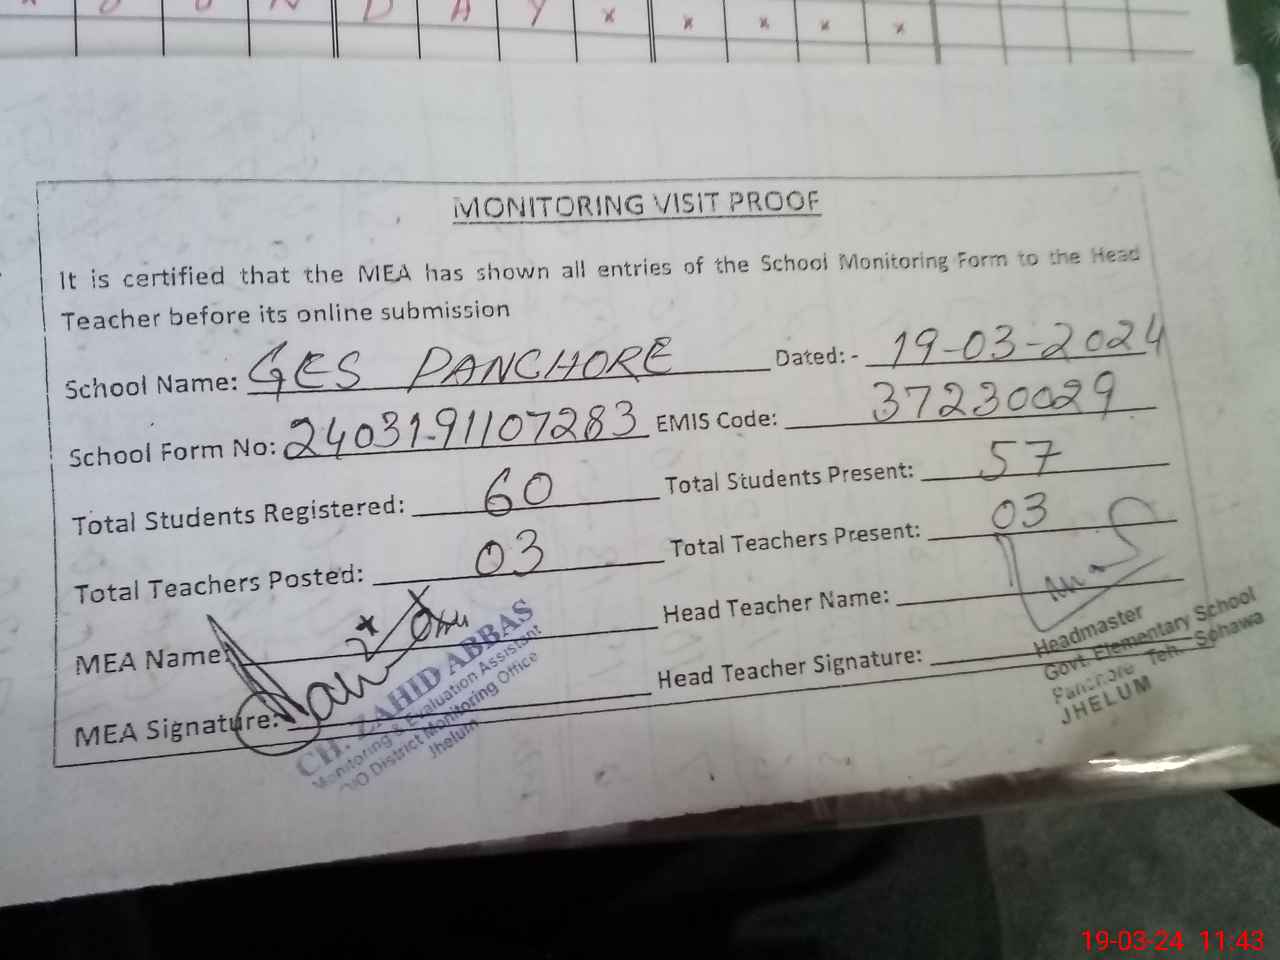 U N D A Y x x x x x
MONITORING VISIT PROOF
It is certified that the MEA has shown all entries of the School Monitoring Form to the Head
Teacher before its online submission
School Name: GES PANCHORE Dated: - 19-03-2024
School Form No: 2403191107283 EMIS Code: 37230029
Total Students Registered: 60 Total Students Present: 57
Total Teachers Posted: 03 Total Teachers Present: 03
MEA Name: Head Teacher Name:
MEA Signature: Head Teacher Signature:
CH. ZAHID ABBAS
Monitoring & Evaluation Assistant
O/O District Monitoring Office
Jhelum
Headmaster
Govt. Elementary School
Panchore Teh. Sohawa
JHELUM
19-03-24 11:43